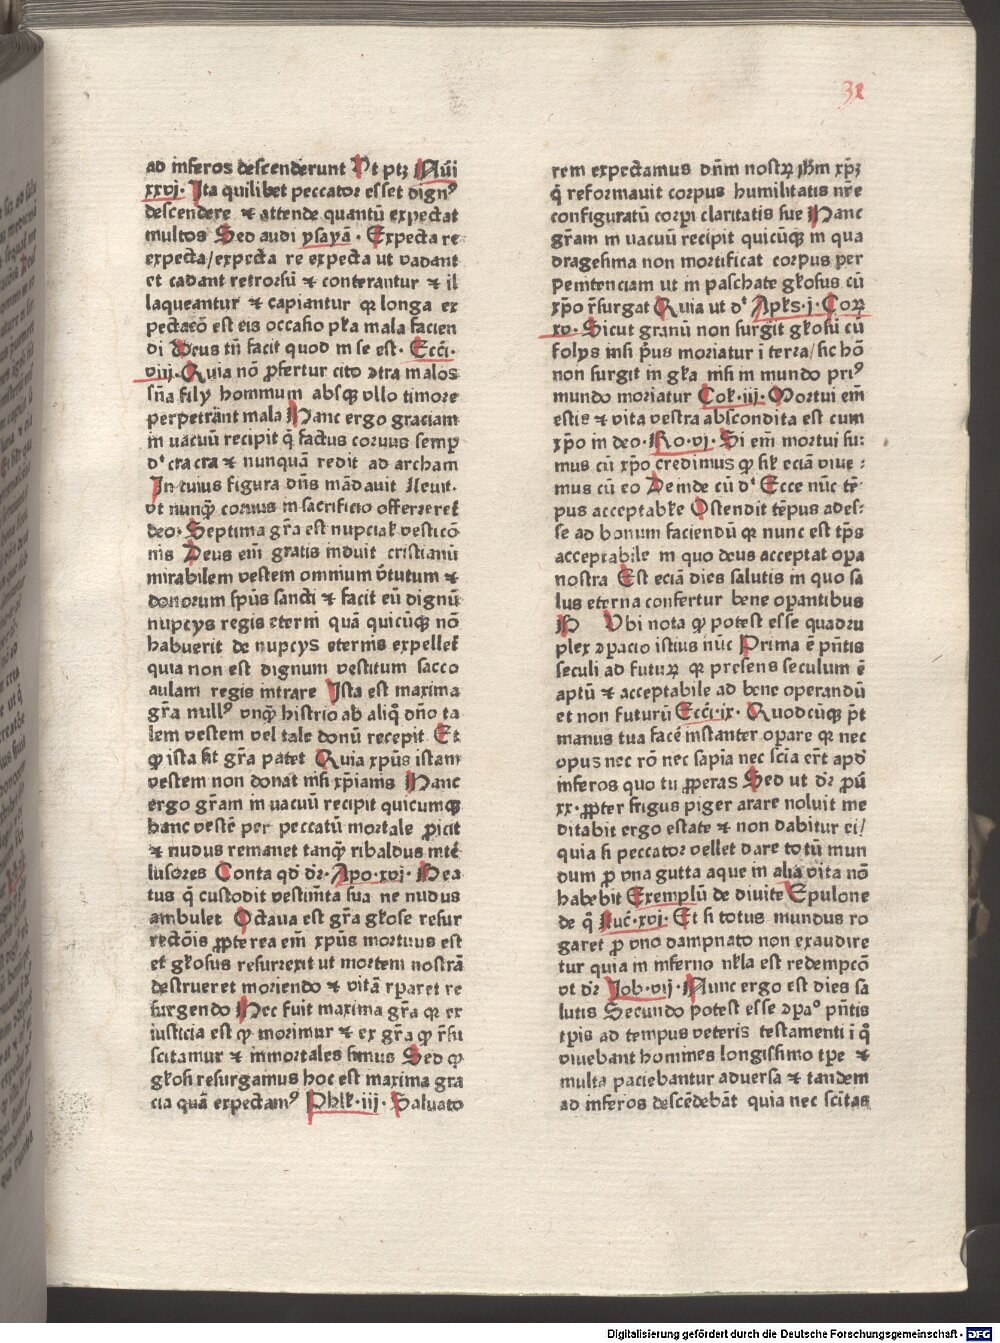 31
ad inferos descenderunt Vt ptꝫ Nūi
xxvj. Ita quilibet peccator esset dignꝰ
descendere ⁊ attende quantū expectat
multos Sed audi ysayā. Expecta re
expecta/expecta re expecta ut vadant
et cadant retrorsū ⁊ conterantur ⁊ il
laqueantur ⁊ capiantur qꝛ longa ex
pectacō est eis occasio pꝉa mala facien
di Deus tn̄ facit quod in se est. Ecc̄i.
viij. Quia nō ꝓfertur cito ↄtra malos
sn̄a filij hominum absqꝫ vllo timore
perpetrānt mala Hanc ergo graciam
in vacuū recipit q̄ factus coruus semꝑ
dꝰ cra cra ⁊ nunquā redit ad archam
In cuius figura dn̄s mādauit Leuit.
vt nunꝙ̄ coruus in sacrificio offerreret̄
deo. Septima gr̄a est nupcialꝭ vesticō
nis Deus em̄ gratis induit cristianū
mirabilem vestem omnium v̄tutum ⁊
donorum sp̄us sancti ⁊ facit eū dignū
nupcijs regis eterni quā quicūqꝫ nō
habuerit de nupcijs eternis expellet̄
quia non est dignum vestitum sacco
aulam regis intrare Ista est maxima
gr̄a nullꝰ vnꝙ̄ histrio ab aliq̄ dn̄o ta
lem vestem vel tale donū recepit Et
ꝙ ista sit gr̄a patet Quia xp̄us istam
vestem non donat nisi xp̄ianis Hanc
ergo gr̄am in vacuū recipit quicumqꝫ
hanc vestē per peccatū mortale ꝓicit
⁊ nudus remanet tanꝙ̄ ribaldus int̄
lusores Conta qd̄ dr̄. Apo.xvj. Bea
tus q̄ custodit vestim̄ta sua ne nudus
ambulet Octaua est gr̄a gꝉose resur
rectōis ꝓpterea em̄ xp̄us mortuus est
et gꝉosus resurrexit ut mortem nostrā
destrueret moriendo ⁊ vitā rꝑaret re
surgendo Hec fuit maxima gr̄a qꝛ ex
iusticia est ꝙ morimur ⁊ ex gr̄a ꝙ r̄su
scitamur ⁊ inmortales simus Sed ꝙ
gꝉosi resurgamus hoc est maxima gra
cia quā expectamꝰ Phlꝭ.iij. Saluato
rem expectamus dn̄m nostrꝝ ihm̄ xp̄ꝫ
q̄ reformauit corpus humilitatis nr̄e
configuratū corꝑi claritatis sue Hanc
gr̄am in vacuū recipit quicūqꝫ in qua
dragesima non mortificat corpus per
penitenciam ut in paschate gꝉosus cū
xp̄o r̄surgat Quia ut dꝰ Apl̄s.j.Corꝝ
xv. Sicut granū non surgit gꝉosū cū
folijs nisi p̄us moriatur ī terra/sic hō
non surgit in gꝉa nisi in mundo priꝰ
mundo moriatur Colꝭ.iij. Mortui em̄
estis ⁊ vita vestra abscondita est cum
xp̄o in deo. Ro.vj. Si em̄ mortui su:
mus cū xp̄o credimus ꝙ silꝭ eciā viue:
mus cū eo Deinde cū dꝰ Ecce nūc tē
pus acceptabꝉe Ostendit tēpus ades:
se ad bonum faciendū qꝛ nunc est tp̄s
acceptabile in quo deus acceptat oꝑa
nostra Est eciā dies salutis in quo sa
lus eterna confertur bene oꝑantibus
Vbi nota ꝙ potest esse quadru
plex ↄꝑacio istius nūc Prima ē pn̄tis
seculi ad futurꝝ qꝛ presens seculum ē
aptū ⁊ acceptabile ad bene operandū
et non futurū Ecc̄i.ix. Quodcūqꝫ p̄t
manus tua facē instanter oꝑare qꝛ nec
opus nec rō nec sapīa nec scīa er̄t apd̄
inferos quo tu ꝓperas Sed ut dr̄ ꝓū
xx. ꝓpter frigus piger arare noluit me
ditabit ergo estate ⁊ non dabitur ei/
quia si peccator vellet dare totū mun
dum ꝓ vna gutta aque in alia vita nō
habebit Exemplū de diuite Epulone
de q̄ Luc̄.xvj. Et si totus mundus ro
garet ꝓ vno dampnato non exaudire
tur quia in inferno nꝉla est redempcō
vt dr̄ Job.vij. Nunc ergo est dies sa
lutis Secundo potest esse ↄꝑaᵒ pn̄tis
tꝑis ad tempus veteris testamenti ī q̄
viuebant homines longissimo tꝑe ⁊
multa paciebantur aduersa ⁊ tandem
ad inferos descēdebāt quia nec scītas
Digitalisierung gefördert durch die Deutsche Forschungsgemeinschaft - DFG